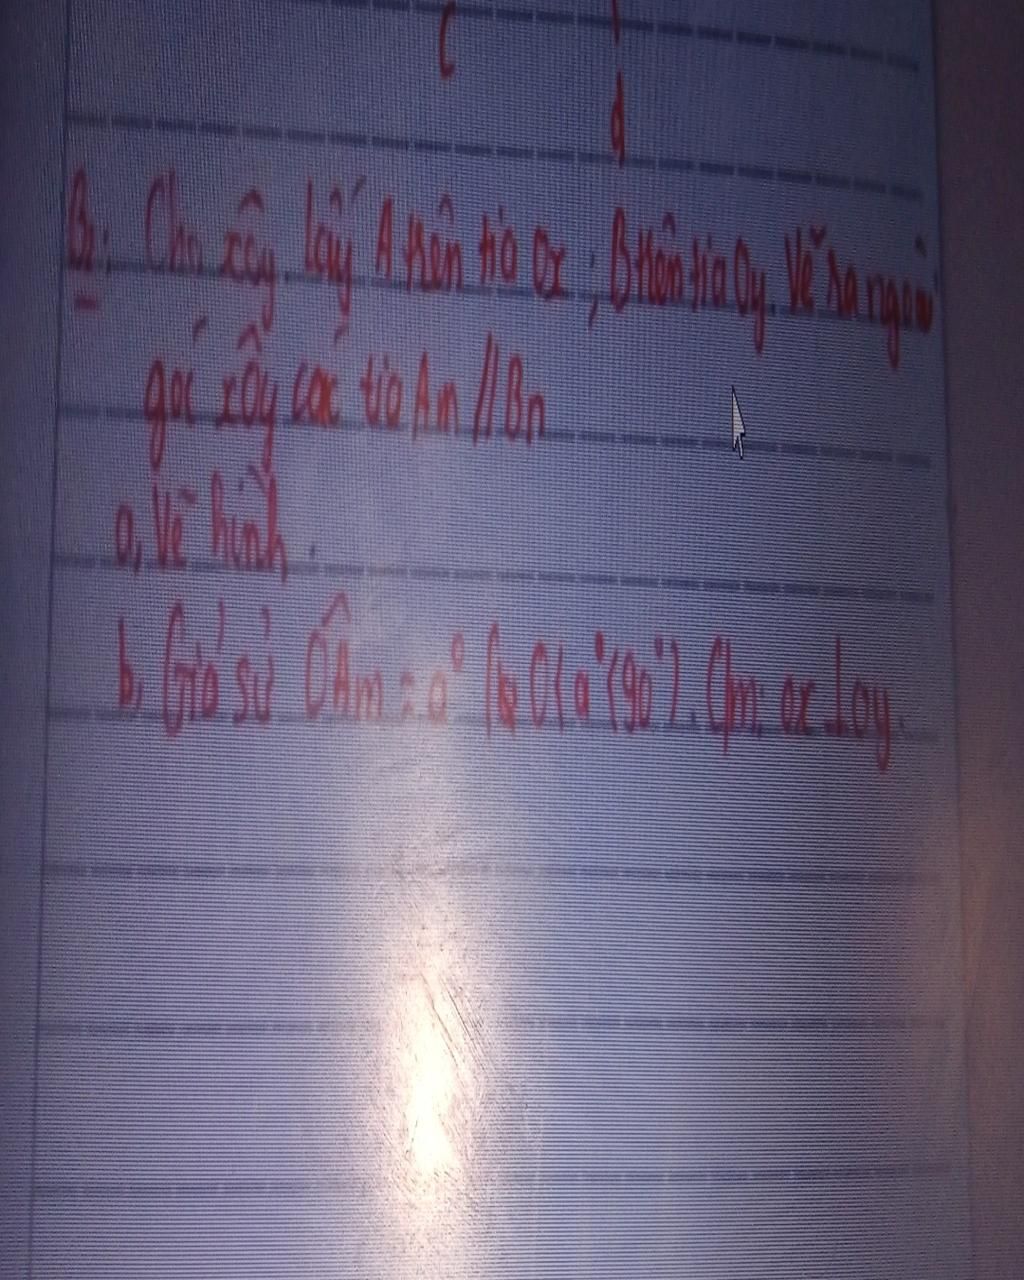 c
d
B2: Cho xôy. lấy A trên tia Ox; B trên tia Oy. Vẽ ra ngoài
góc xôy các tia Am // Bn
a, Vẽ hình.
b, Giả sử OÂm = a° 0<a°<90°). Cm: ox ⊥ oy.